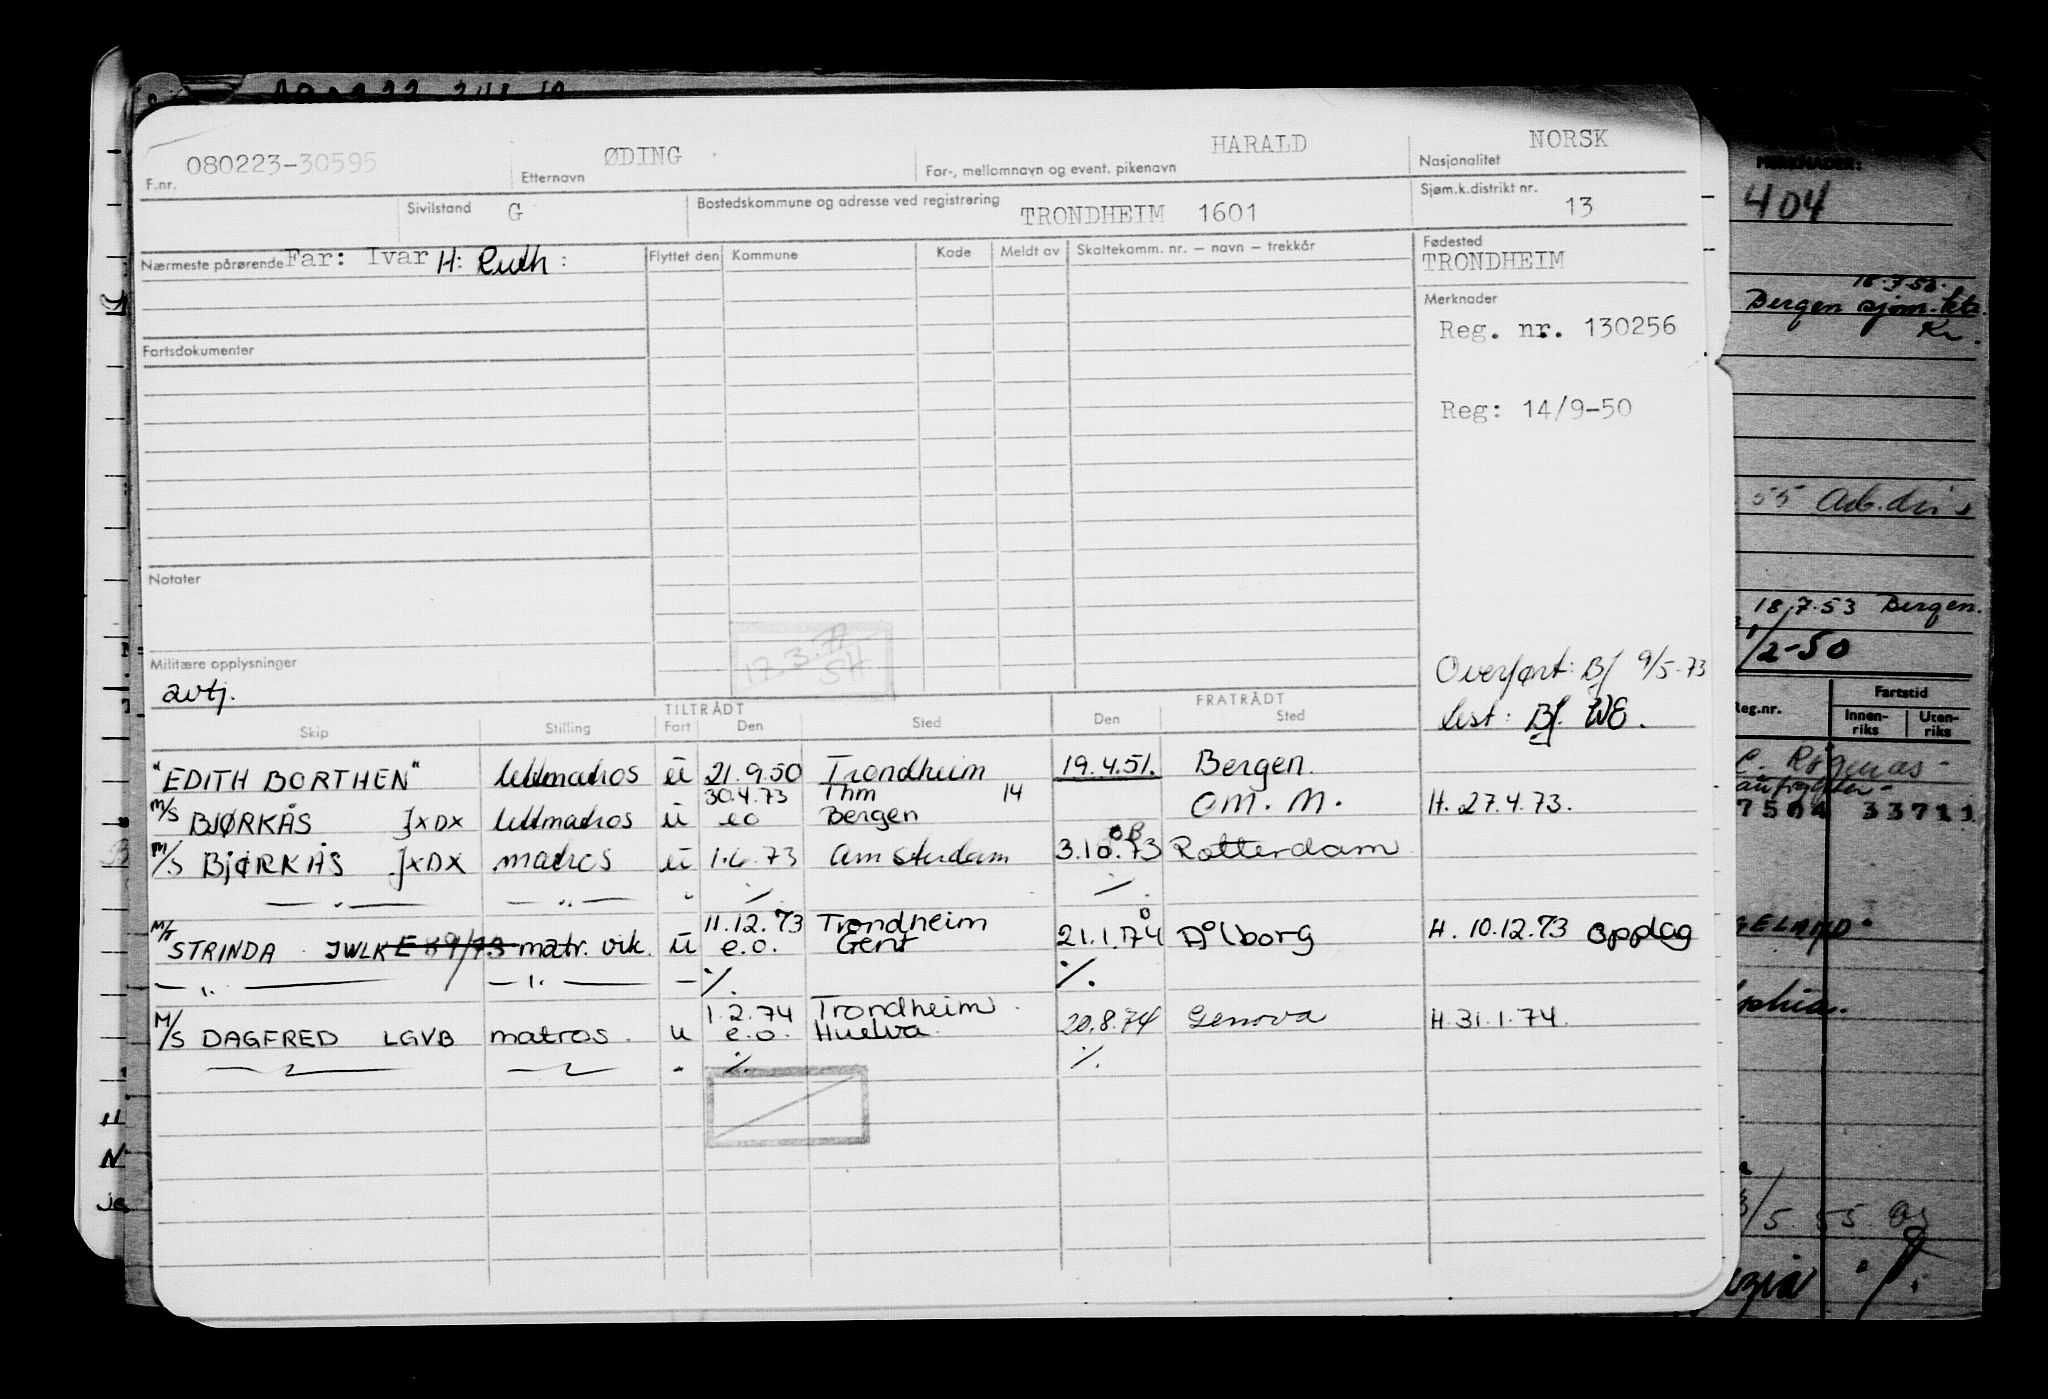 080223-30595 ØDING HARALD NORSK
F.nr. Etternavn For-, mellomnavn og event. pikenavn Nasjonalitet
Sivilstand G Bostedskommune og adresse ved registrering TRONDHEIM 1601 Sjøm.k.distrikt nr. 13
Nærmeste pårørende Far: Ivar H: Ruth: Flyttet den Kommune Kode Meldt av Skattekomm. nr. – navn – trekkår Fødested
TRONDHEIM
Merknader
Reg. nr. 130256
Fartsdokumenter
Reg: 14/9-50
Notater
17.3.
SH
Militære opplysninger
avtj.
Overført: Bf 9/5-73
Lest: Bf. WE.
TILTRÅDT FRATRÅDT
Skip Stilling Fart Den Sted Den Sted
"EDITH BORTHEN" lettmatros u 21.9.50 Trondheim 19.4.51. Bergen.
30.4.73 Thm 14
M/S BJØRKÅS JXDX lettmatros u eo Bergen OM. M. H. 27.4.73.
M/S BJØRKÅS JXDX matros u 1.6.73 Amsterdam 3.10.73 Rotterdam
— " — — " — " ./. ./.
11.12.73 Trondheim
M/T STRINDA JWLK E 89/73 matr. vik. u e.o. Gent 21.1.74 Ålborg H. 10.12.73 oppdag
— " — — " — — ./. ./.
1.2.74 Trondheim
M/S DAGFRED LGVB matros. u e.o. Huelva 20.8.74 Genova H. 31.1.74.
— " — — " — " ./. ./.
MERKNADER:
404
18.7.53.
Bergen sjøm.ktr.
Kr.
55
18.7.53 Bergen.
1/2-50
Reg.nr. Fartstid
Innen-riks Uten-riks
33711
5.55.